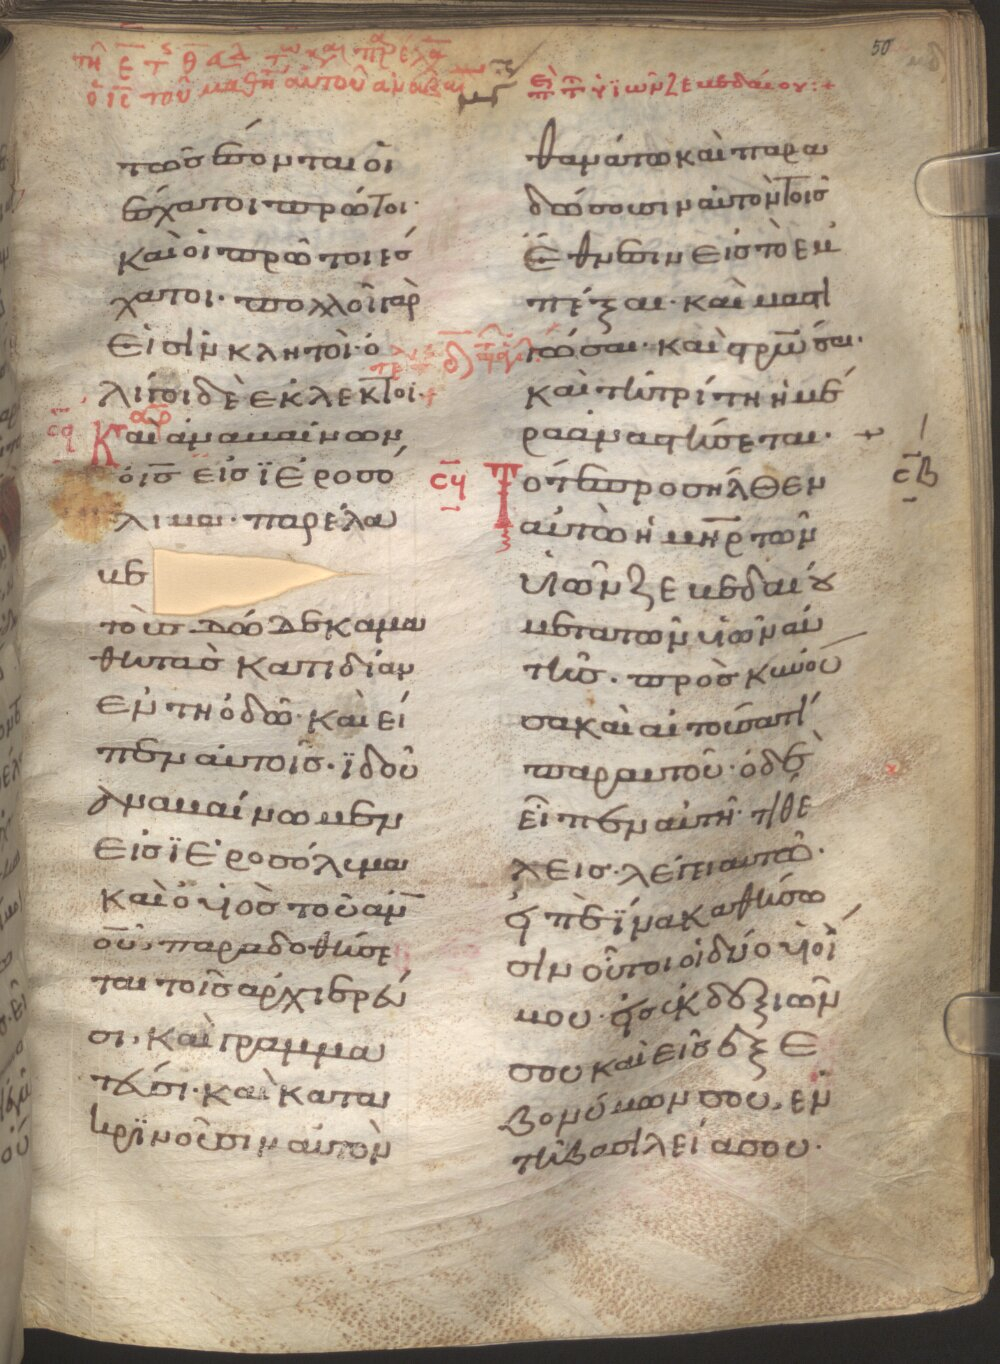 τῆ ε̄ τ ς θ
ὁ ις τοὺ μαθη αὐτοῦ ἀναβαι
50
π τ υἱῶν ζεβεδαίου:+
τωσ ἔσονται οἱ
ἔσχατοι πρῶτοι·
καὶ οἱ πρῶτοι ἔσ
χατοι· πολλοὶ γὰρ
εἰσὶν κλητοὶ· ὀ
λίγοι δὲ ἐκλεκτοί·
σϥ
ἀρ
Καὶ ἀναβαίνων
ὁ ισ εἰσ ϊεροσό
λυμα· παρέλα
βε
τοὺσ δώδεκα μα
θητὰσ κατιδίαν
ἐν τῆ ὁδῶ· καὶ εἶ
πεν αὐτοῖσ· ϊδοὺ
ἀναβαίνωμεν
εἰσ ϊεροσόλυμα
καὶ ὁ υἱὸσ τοῦ ἀν
ου· παραδοθήσε
ται τοῖσ ἀρχιερεῦ
σι· καὶ γραμμα
τεῦσι· καὶ κατα
κρϊνοῦσιν αὐτὸν
θανάτω καὶ παρα
δώσωσιν αὐτὸν τοῖσ
ἔθνεσιν εἰσ τὸ ἐμ
πέξαι· καὶ μαστι
γῶσαι· καὶ στρῶσαι·
καὶ τῆ τρίτη ἡμέ
ρα ἀναστήσεται·
σϥ
σβ
Τότε προσῆλθεν
αὐτῶ ἡ μηρ τῶν
υἱῶν ζεβεδαίου
μετὰ τῶν υἱῶν αὐ
τῆσ· προσκυνοῦ
σα καὶ αἰτοῦσά τι
παρ αὐτοῦ· ὁ δὲ
εἶπεν αὐτῆ· τί θέ
λεισ· λέγει αὐτῶ·
εἰπὲ ϊνα καθήσω
σιν οὗτοι οἱ δύο υἱοί
μου· εἷσ ἐκ δεξιῶν
σου καὶ εἷσ ἐξ ε
βονύμων σου· ἐν
τῆ βασιλεία σου·